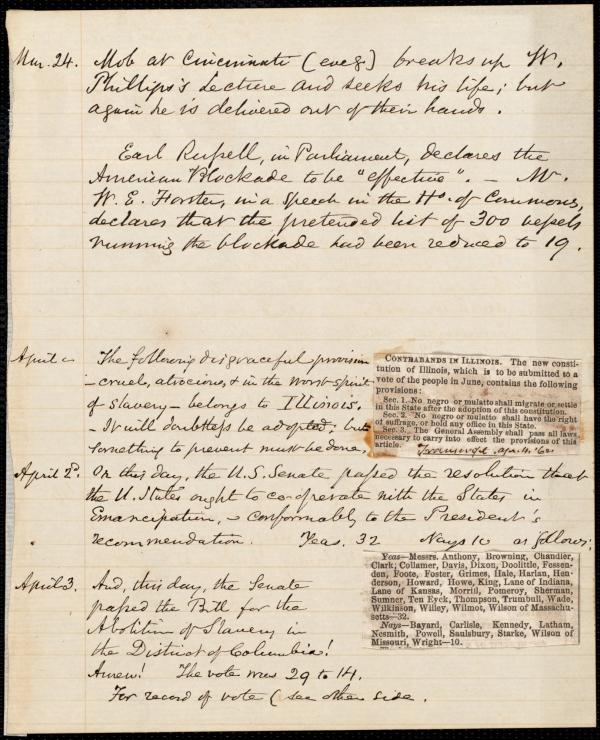 Mar. 24. Mob at Cincinnati (eveg) breaks up W.
Phillips's Lecture and seeks his life; but
again he is delivered out of their hands.
Earl Russell, in Parliament, declares the
American Blockade to be "effective". – Mr.
W. E. Forster, in a speech in the Ho. of Commons,
declares that the pretended list of 300 vessels
running the blockade had been reduced to 19.
April
The following disgraceful provision
– cruel, atrocious, & in the worst spirit
of slavery – belongs to Illinois.
– It will doubtless be adopted; but
something to prevent must be done.
CONTRABANDS IN ILLINOIS. The new consti-
tution of Illinois, which is to be submitted to a
vote of the people in June, contains the following
provisions:
Sec. 1. No negro or mulatto shall migrate or settle
in this State after the adoption of this constitution.
Sec. 2. No negro or mulatto shall have the right
of suffrage, or hold any office in this State.
Sec. 3. The General Assembly shall pass all laws
necessary to carry into effect the provisions of this
article.
April 2d. On this day, the U.S. Senate passed the resolution that
the U. States ought to co-operate with the States in
Emancipation, – conformably to the President's
recommendation. Yeas. 32 Nays 10 as follows;
Yeas—Messrs. Anthony, Browning, Chandler,
Clark, Collamer, Davis, Dixon, Doolittle, Fessen-
den, Foote, Foster, Grimes, Hale, Harlan, Hen-
derson, Howard, Howe, King, Lane of Indiana,
Lane of Kansas, Morrill, Pomeroy, Sherman,
Sumner, Ten Eyck, Thompson, Trumbull, Wade,
Wilkinson, Willey, Wilmot, Wilson of Massachu-
setts—32.
Nays—Bayard, Carlisle, Kennedy, Latham,
Nesmith, Powell, Saulsbury, Starke, Wilson of
Missouri, Wright—10.
April 3. And, this day, the Senate
passed the Bill for the
Abolition of Slavery in
the District of Columbia!
Amen! The vote was 29 to 14.
For record of vote (see other side.